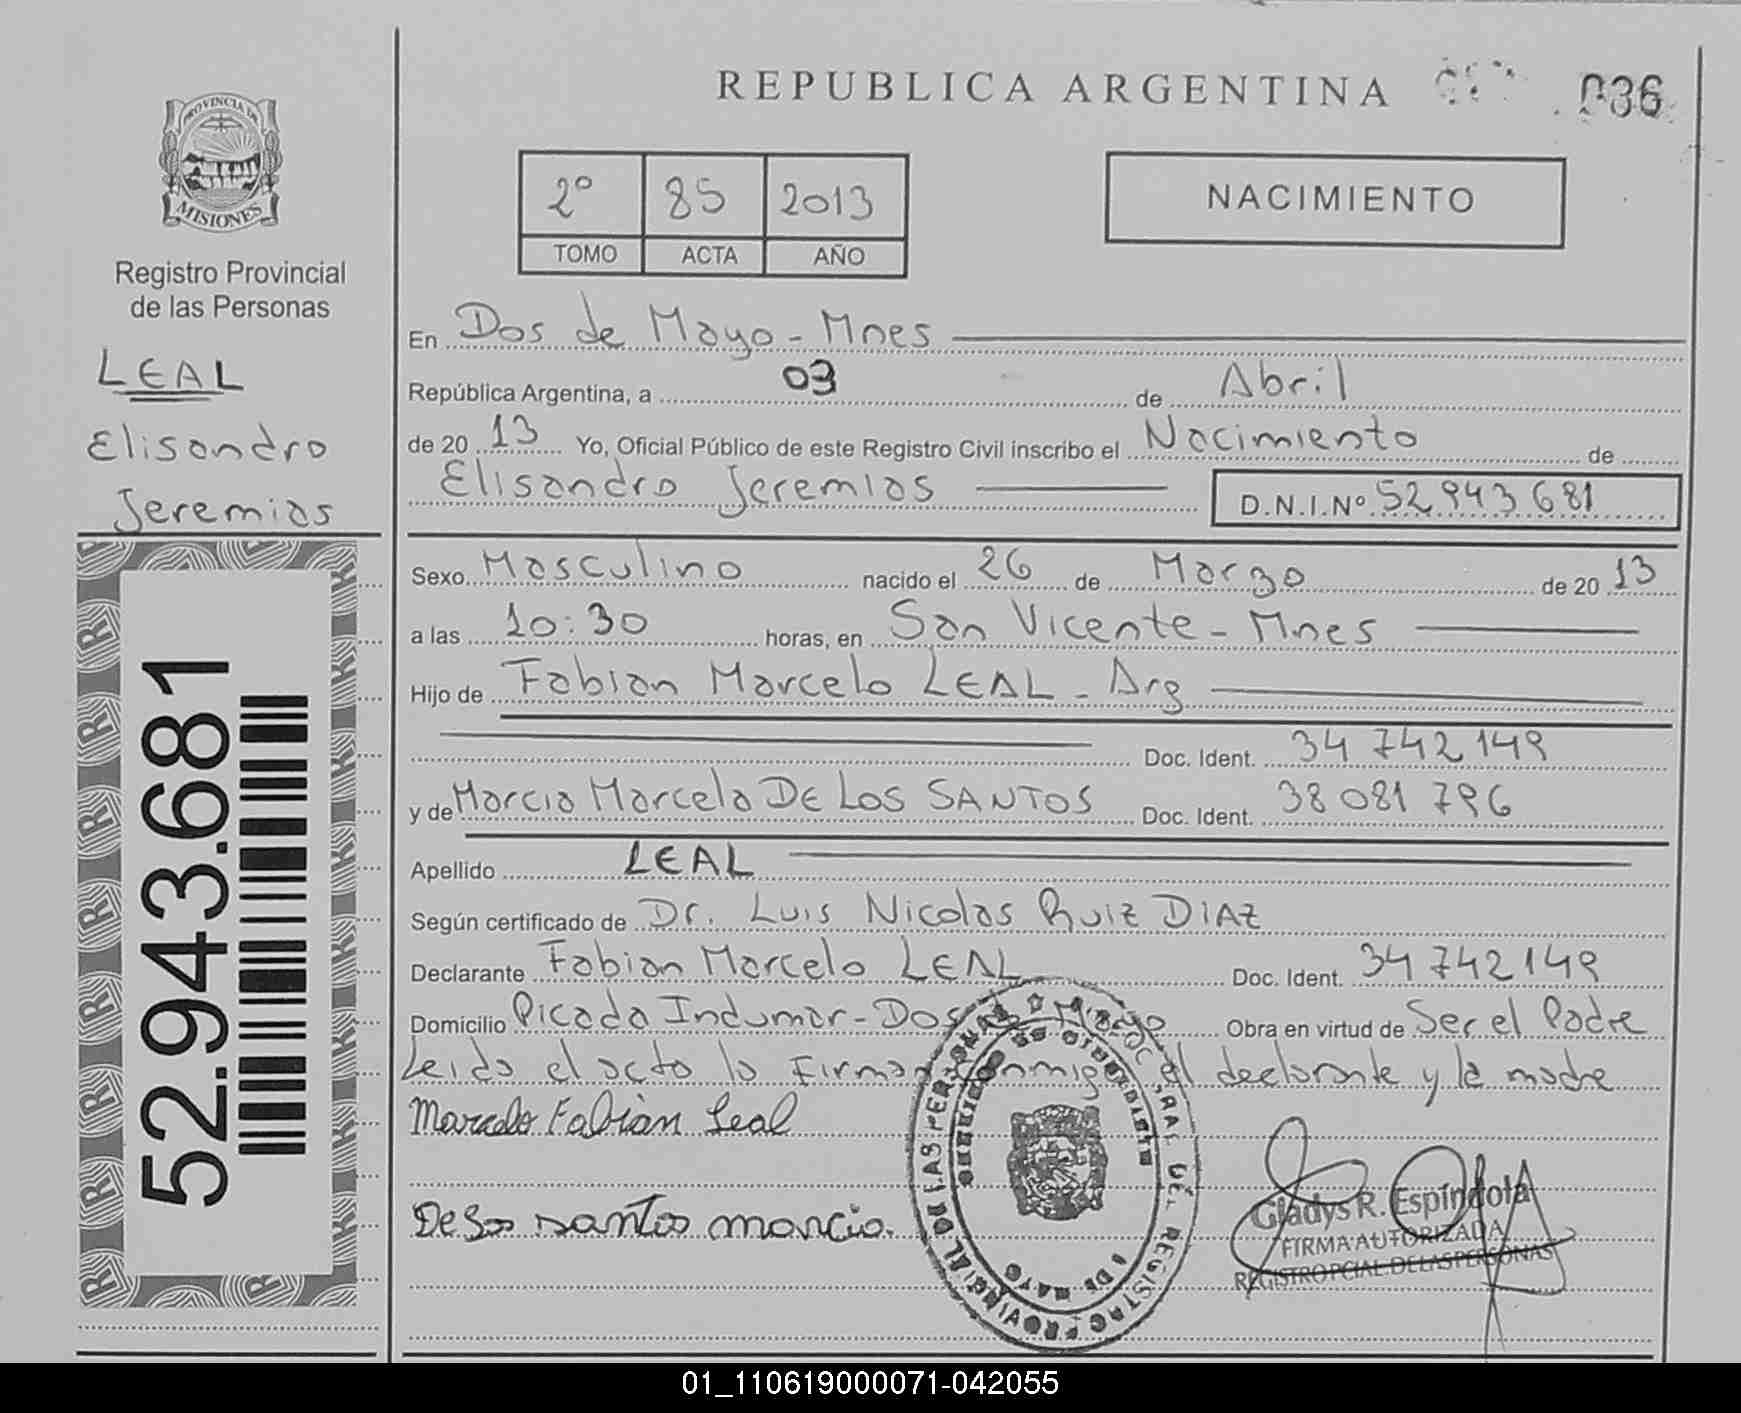 REPUBLICA ARGENTINA
036
PROVINCIA DE
MISIONES
Registro Provincial
de las Personas
LEAL
Elisandro
Jeremias
52.943.681
2º 85 2013
TOMO ACTA AÑO
NACIMIENTO
En Dos de Mayo - Mnes
República Argentina, a 03 de Abril
de 20 13 Yo, Oficial Público de este Registro Civil inscribo el Nacimiento de
Elisandro Jeremias D.N.I.Nº 52 943 681
Sexo Masculino nacido el 26 de Marzo de 20 13
a las 10:30 horas, en San Vicente - Mnes
Hijo de Fabian Marcelo LEAL - Arg
Doc. Ident. 34 742 149
y de Marcia Marcela DE LOS SANTOS Doc. Ident. 38 081 796
Apellido LEAL
Según certificado de Dr. Luis Nicolas Ruiz DIAZ
Declarante Fabian Marcelo LEAL Doc. Ident. 34 742 149
Domicilio Picada Indumar - Dos de Mayo Obra en virtud de Ser el Padre
Leida el acta la Firman conmigo el declarante y la madre
Marcelo Fabián Leal
De Los santos marcia.
REGISTRO PROVINCIAL DE LAS PERSONAS
Gladys R. Espíndola
FIRMA AUTORIZADA
REGISTRO PCIAL. DE LAS PERSONAS
01_110619000071-042055